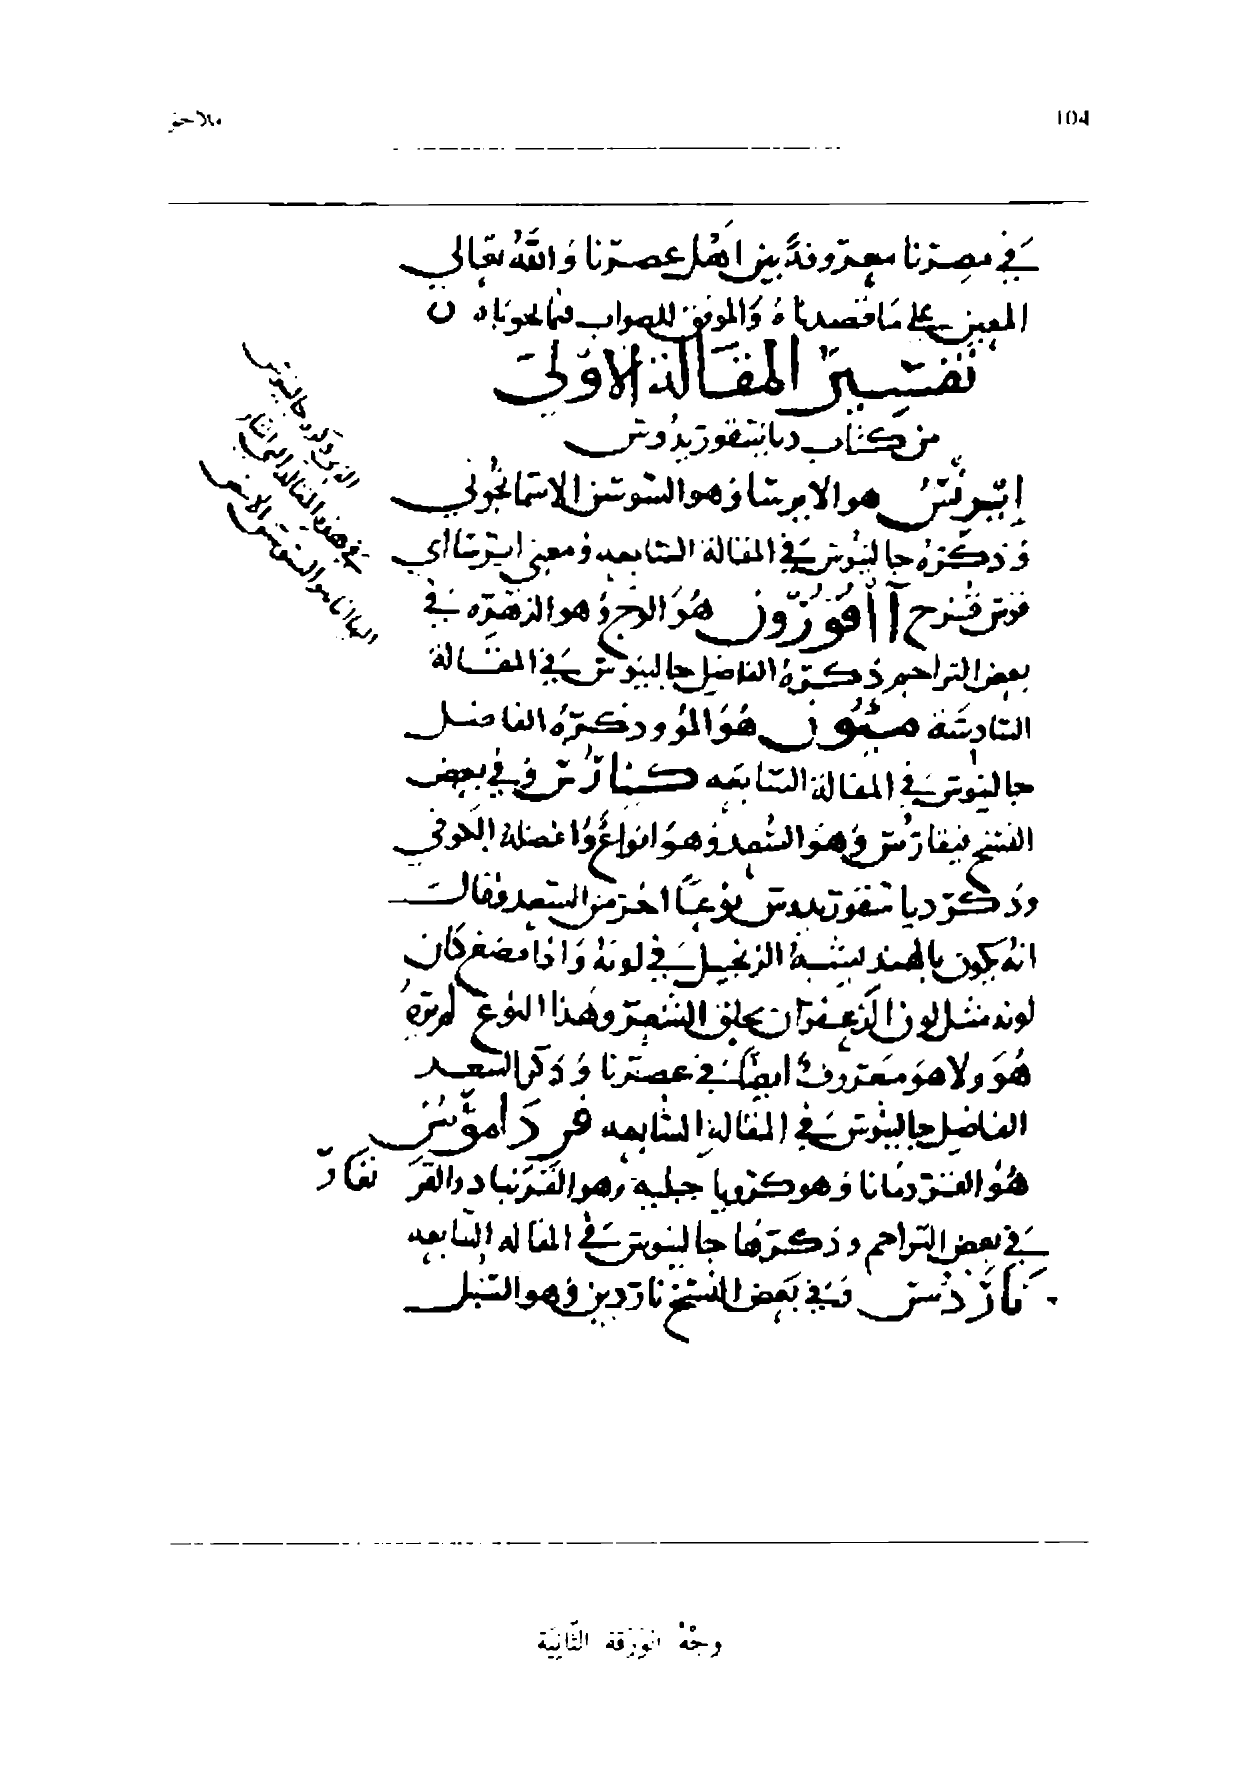 104
ملاحق
في مصرنا معروفة بين اهل عصرنا والله تعالى
المعين على ما قصدناه والموفق للصواب فيما نحوناه ن
تفسير المقالة الاولى
من كتاب دياسقوريدوس
ايرس هو الايرسا وهو السوسن الاسمانجوني
وذكره جالينوس في المقالة السابعه ومعنى ايرسا اي
قوس قزح آ اقورون هو الوج وهو الزهره في
بعض التراجم ذكره الفاضل جالينوس في المقالة
السادسة ميون هو المو وذكره الفاضل
جالينوس في المقالة السابعه وفي بعض
النسخ هو السعد وهو انواع وافضله الكوفي
وذكر دياسقوريدوس نوعا اخر من السعد وقال
انه يكون بالهند يشبه الزنجبيل في لونه واذا مضغ كان
لونه مثل لون الزعفران يحلق الشعر وهذا النوع لم يره
هو ولا هو معروف ايضا في عصرنا وذكر السعد
الفاضل جالينوس في المقالة الثامنه قردامومن
هو القردمانا وهو كرويا جبليه وهو القرنباد والقر نقاد
في بعض التراجم وذكرها جالينوس في المقاله السابعه
ناردس وفي بعض النسخ ناردين وهو السنبل
الذي ذكره جالينوس
في هذه المقالة
السوسن الابيض
وجه الورقة الثانية